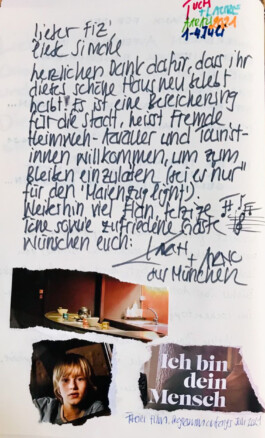 1-4 Juli
Lieber Fiz,
liebe Simone
herzlichen Dank dafür, dass ihr
dieses schöne Haus neu belebt
habt! Es ist eine Bereicherung
für die Stadt, heisst Fremde
Heimweh-Aarauer und Tourist-
innen willkommen, um zum
Bleiben einzuladen (sei es "nur"
für den 'Maienzug light').
Weiterhin viel Elan,
Töne sowie zufriedene Gäste
wünschen euch:
aus München
Ich bin
dein
Mensch